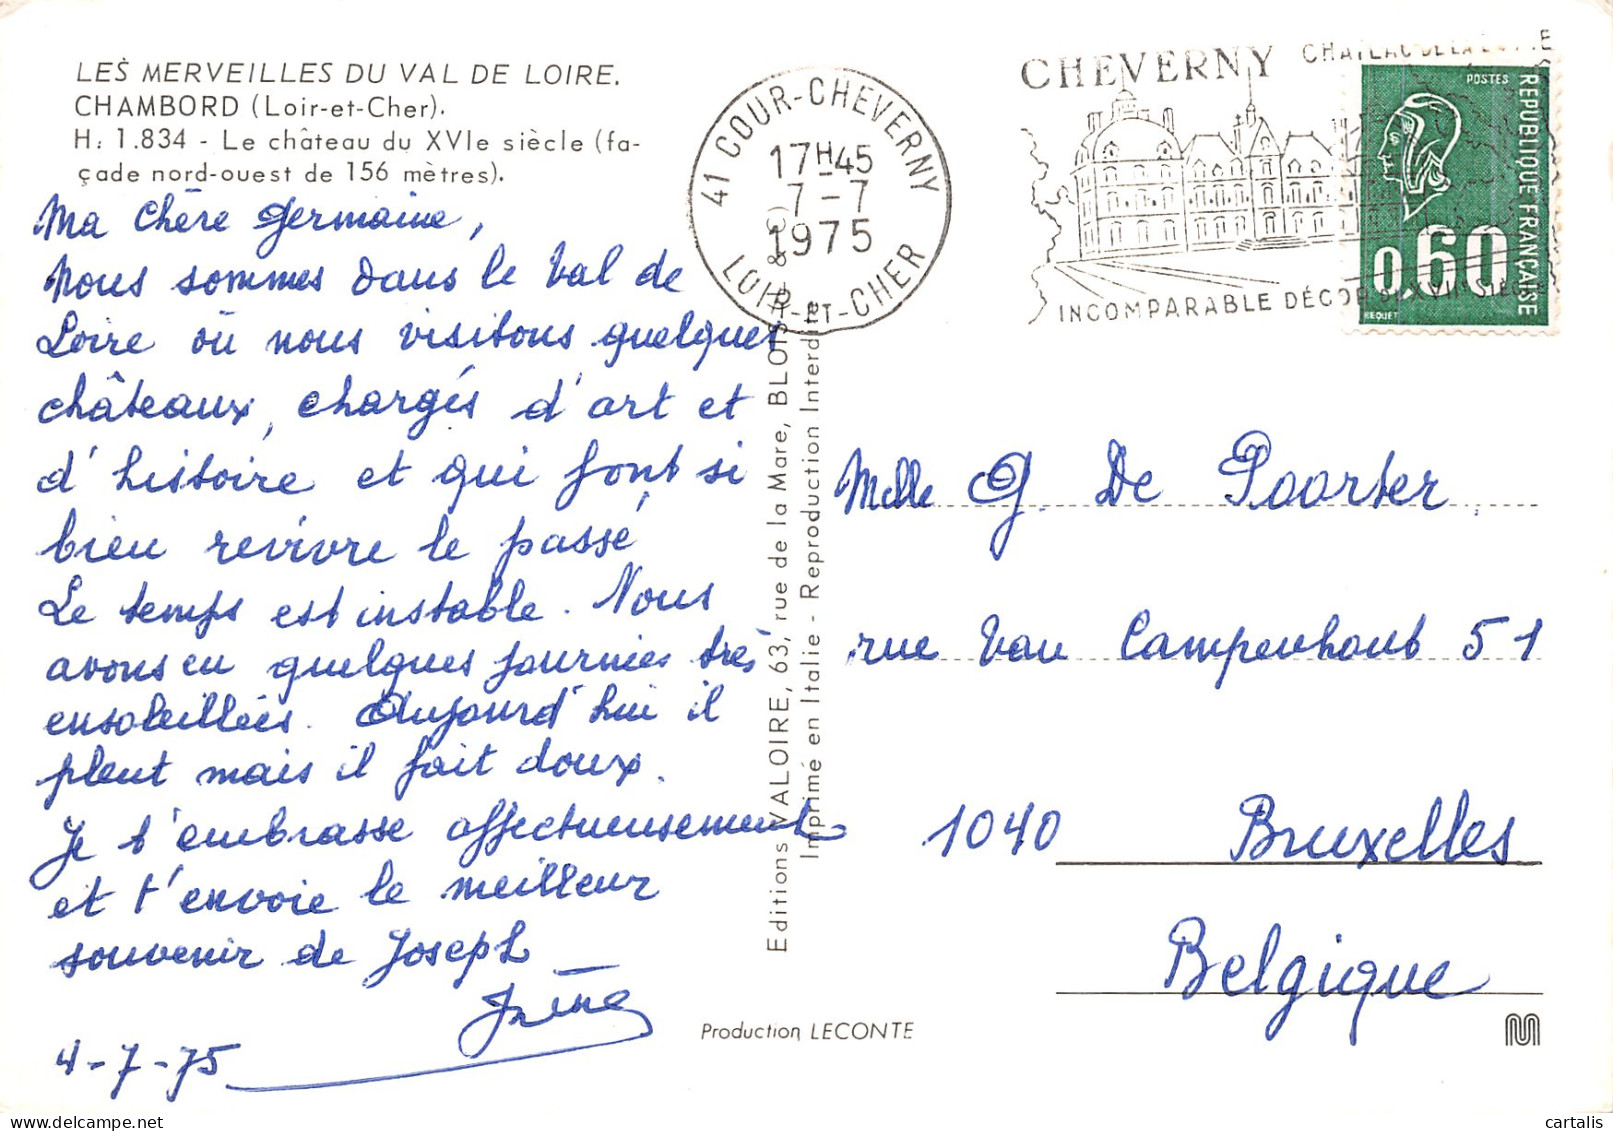 LES MERVEILLES DU VAL DE LOIRE.
CHAMBORD (Loir-et-Cher).
H. 1.834 - Le château du XVIe siècle (fa-
çade nord-ouest de 156 mètres).
Ma chère Germaine,
Nous sommes dans le Val de
Loire où nous visitons quelques
châteaux, chargés d'art et
d'histoire et qui font si
bien revivre le passé
Le temps est instable. Nous
avons eu quelques journées très
ensoleillées. Aujourd'hui il
pleut mais il fait doux.
Je t'embrasse affectueusement
et t'envoie le meilleur
souvenir de Joseph
Irène
4-7-75
Editions VALOIRE, 63, rue de la Mare, BLOIS
Imprimé en Italie - Reproduction Interdite
Production LECONTE
41 COUR-CHEVERNY
17H45
7-7
1975
LOIR-ET-CHER
CHEVERNY
INCOMPARABLE DÉCOR
POSTES
REPUBLIQUE FRANÇAISE
0,60
BEQUET
Melle G. De Poorter
rue Van Campenhout 51
1040 Bruxelles
Belgique
delcampe.net
cartalis